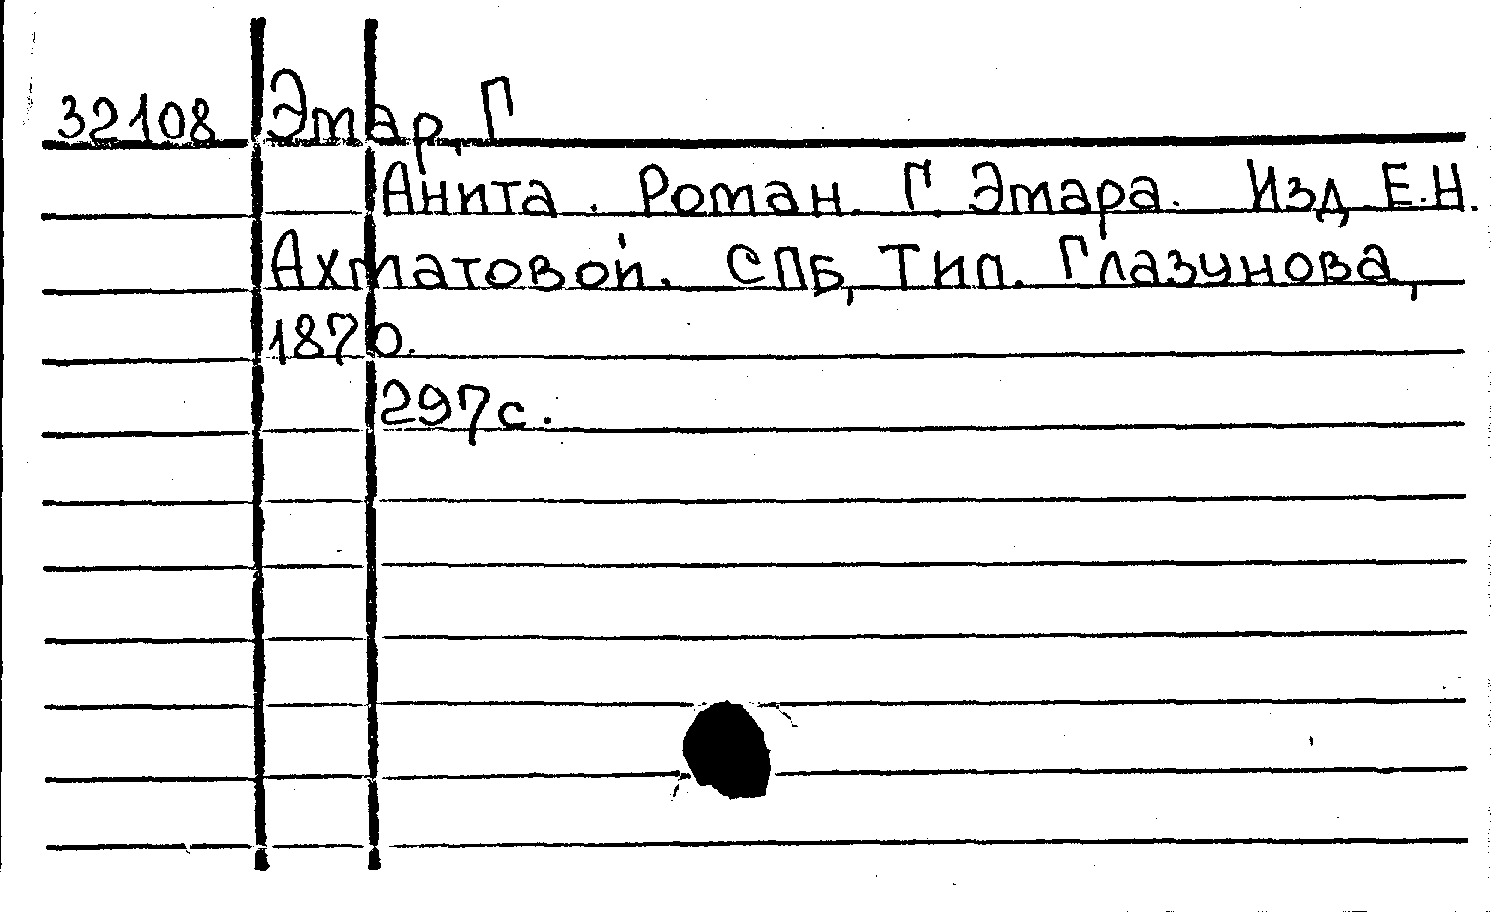 32108 Эмар, Г
Анита. Роман Г. Эмара. Изд. Е.Н.
Ахматовой. СПБ, Тип. Глазунова,
1870.
297с.